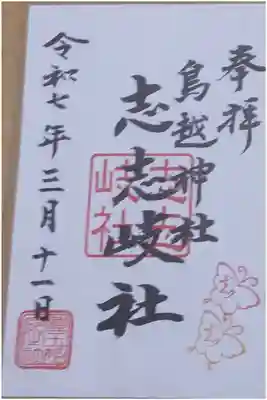 奉拝
鳥越神社
志志岐社
令和七年三月十一日
志志岐社